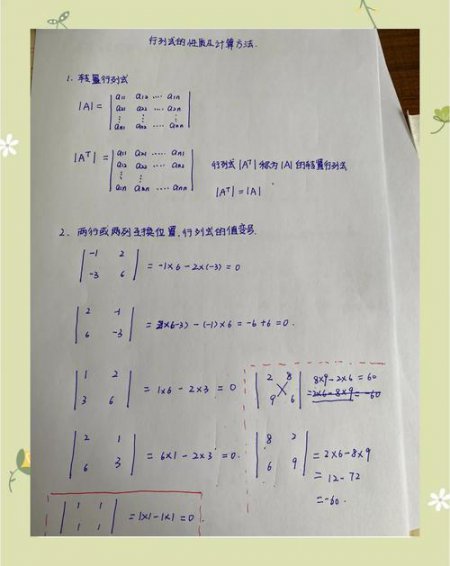 行列式的性质及计算方法.
1. 转置行列式
|A| = | a11 a12 ··· a1n |
| a21 a22 ···· a2n |
| ⋮ ⋮ ⋮ |
| an1 an2 ··· ann |
|Aᵀ| = | a11 a21 ····· an1 |
| a12 a22 ···· an2 |
| ⋮ ⋮ |
| a1n a2n ··· ann |
行列式|Aᵀ|称为|A|的转置行列式
|Aᵀ|=|A|
2. 两行或两列互换位置,行列式的值变号.
| -1 2 |
| -3 6 | = -1×6-2×(-3)=0
| 2 -1 |
| 6 -3 | = 2×(-3)-(-1)×6=-6+6=0.
| 1 2 |
| 3 6 | = 1×6-2×3=0
| 2 8 |
| 9 6 | 8×9-2×6=60
=2×6-8×9=-60
| 2 1 |
| 6 3 | = 6×1-2×3=0.
| 8 2 |
| 6 9 | = 2×6-8×9
= 12-72
=-60.
| 1 1 |
| 1 1 | = 1×1-1×1=0.